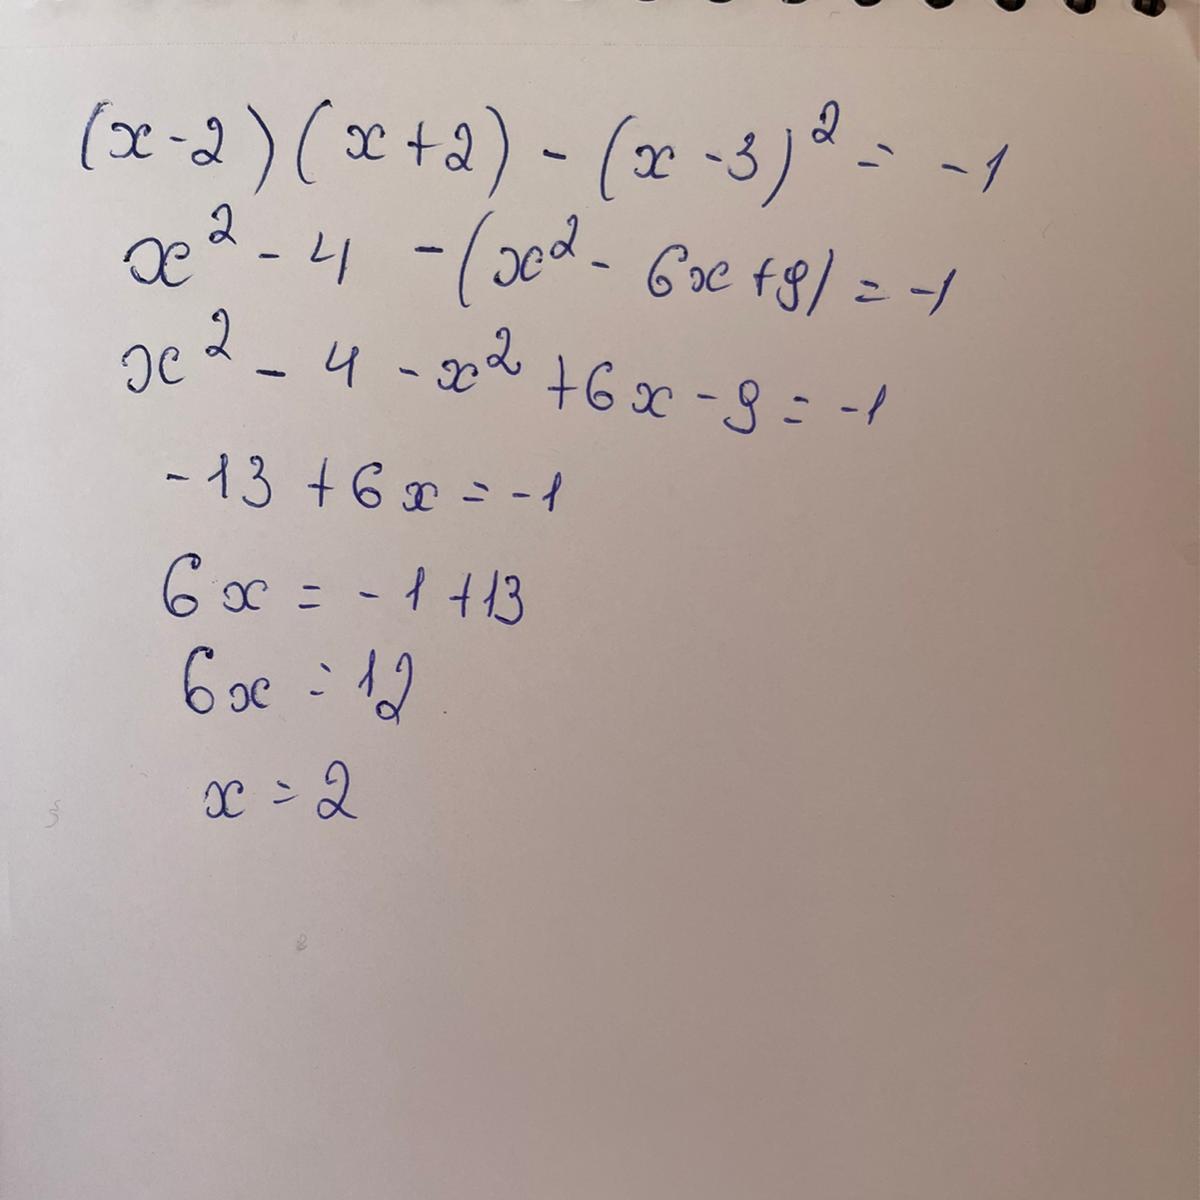 (x-2)(x+2)-(x-3)²=-1
x²-4-(x²-6x+9)=-1
x²-4-x²+6x-9=-1
-13+6x=-1
6x=-1+13
6x=12
x=2